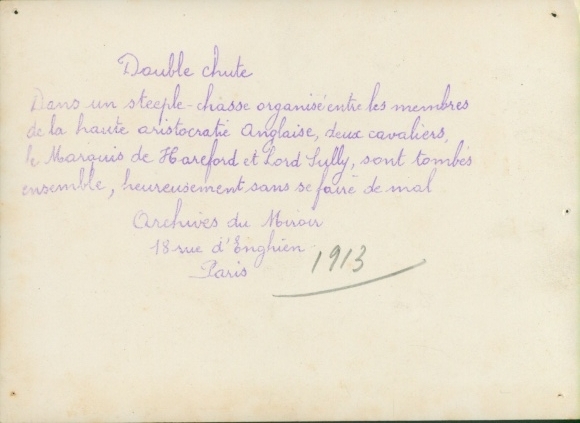 Double chute
Dans un steeple-chasse organisé entre les membres
de la haute aristocratie Anglaise, deux cavaliers,
le Marquis de Hareford et Lord Sully, sont tombés
ensemble, heureusement sans se faire de mal
Archives du Miroir
18 rue d'Enghien
Paris
1913